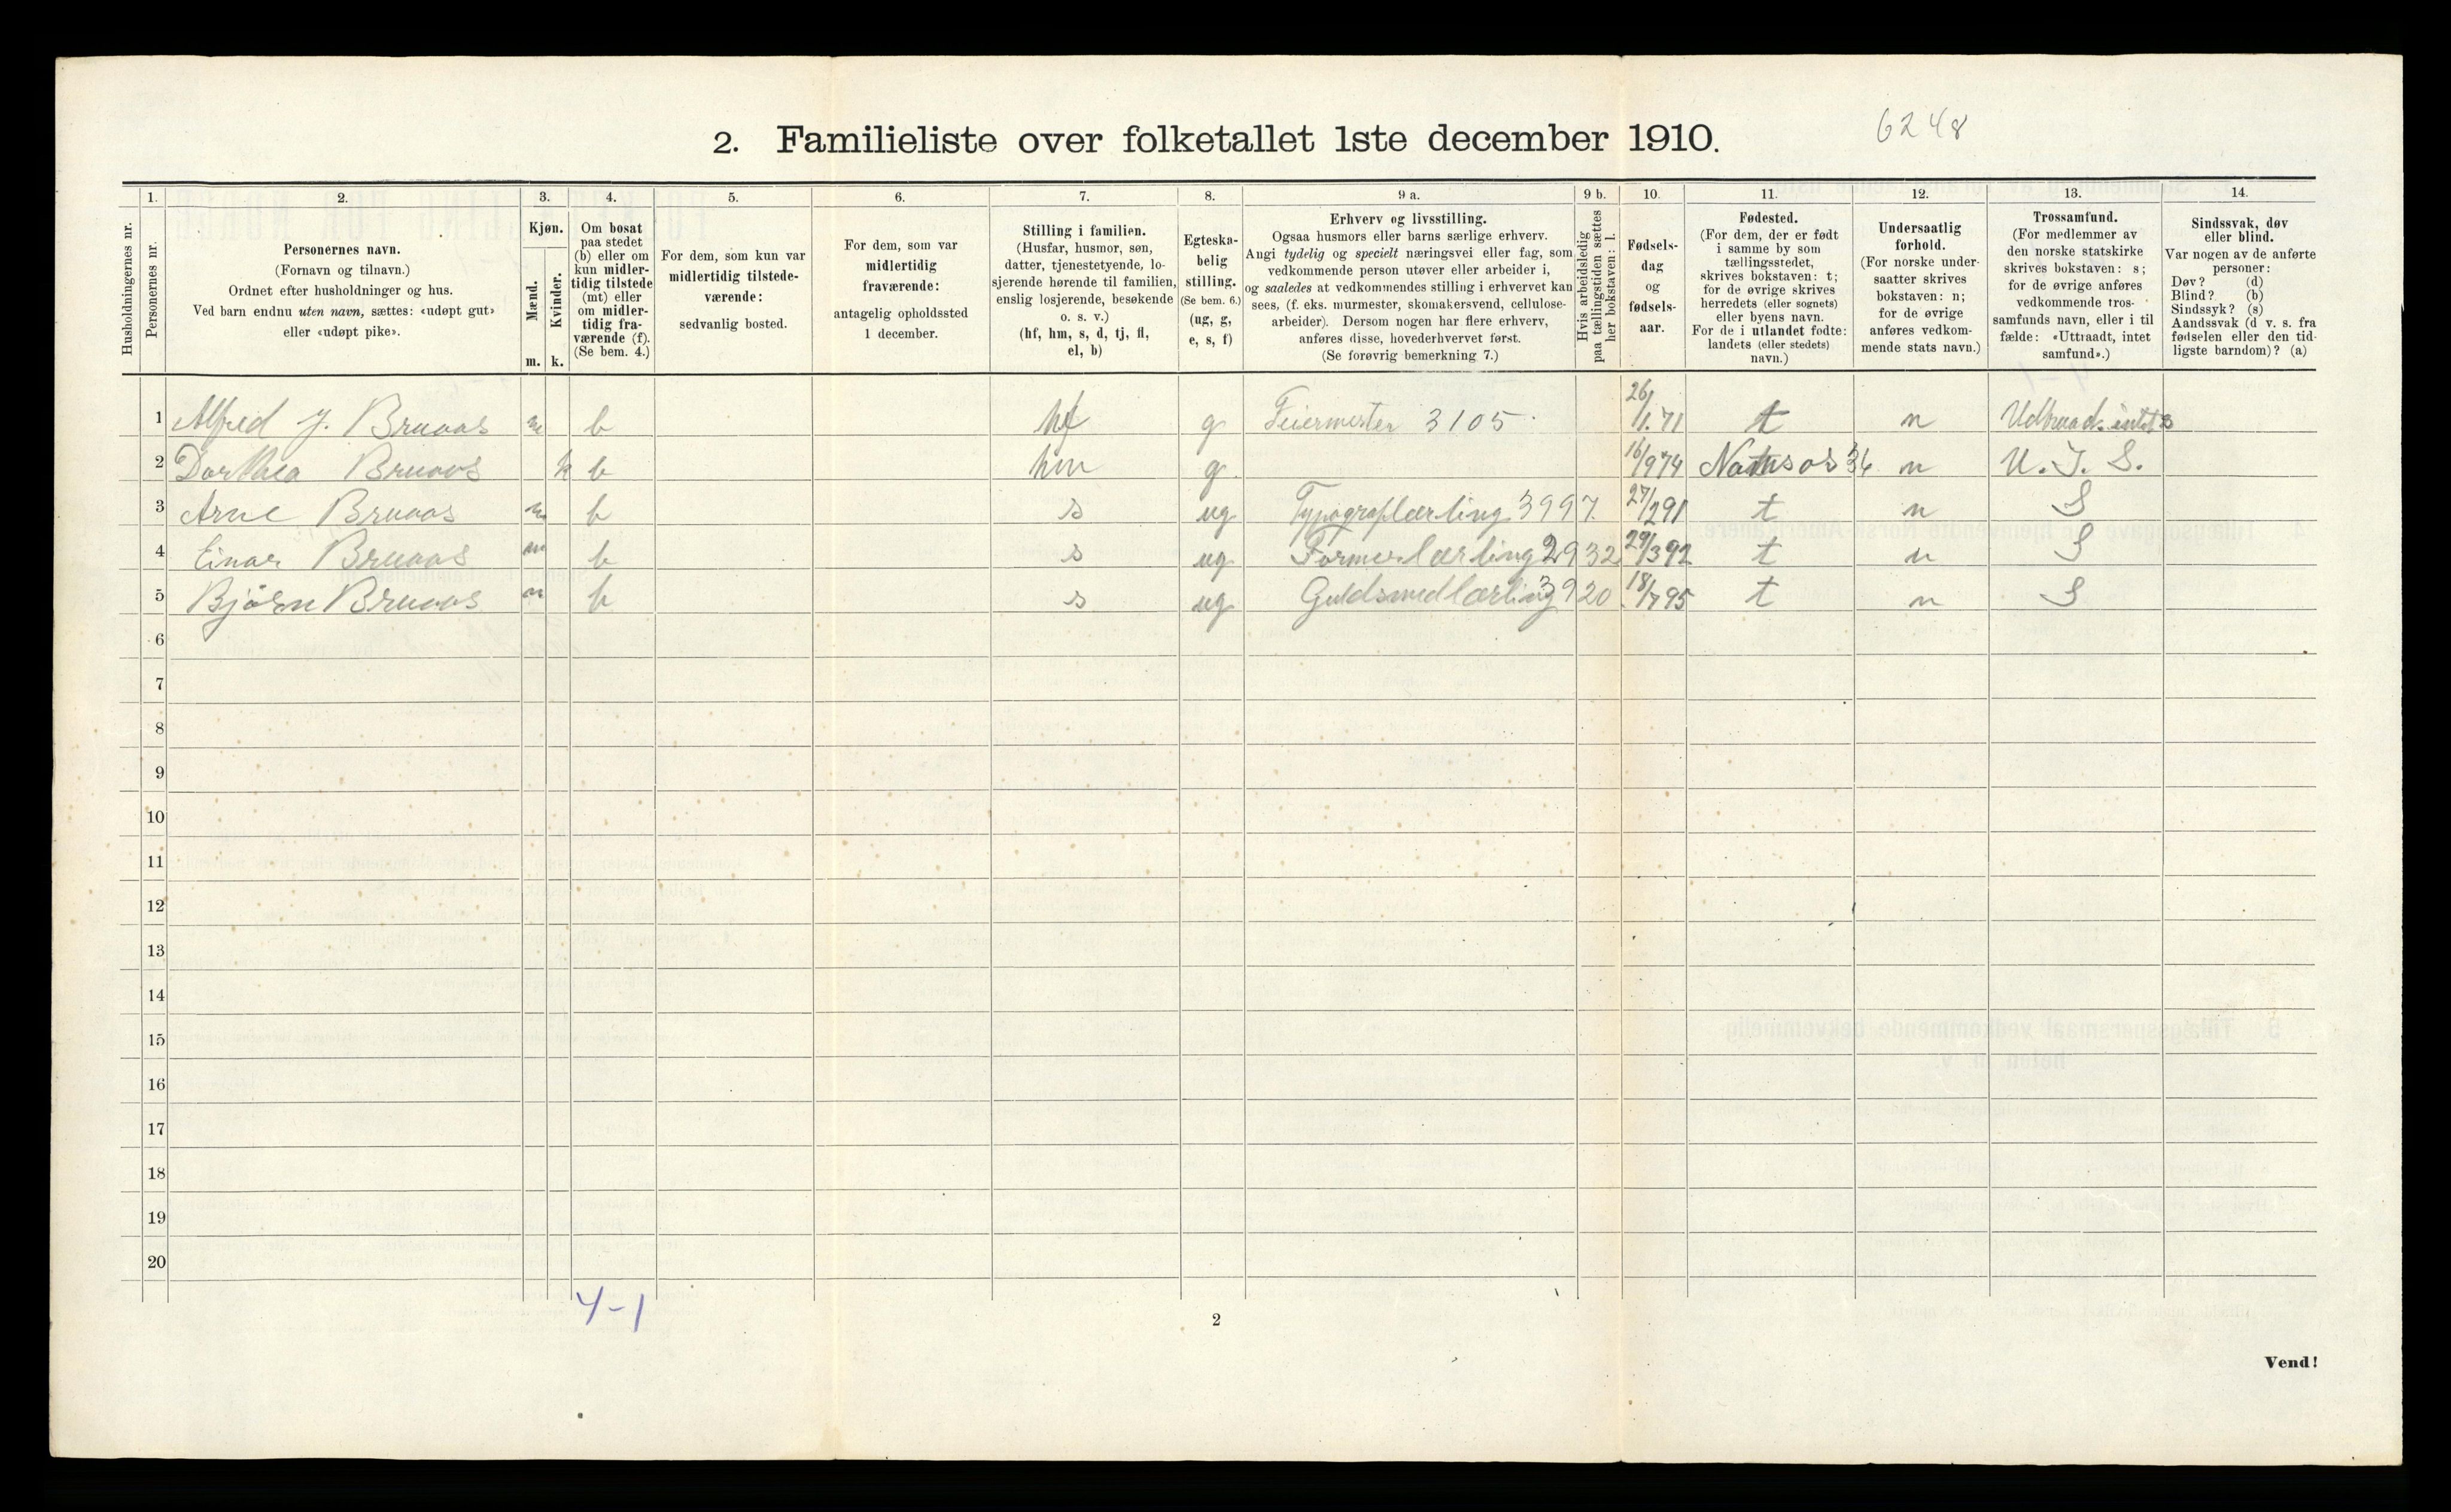 6248
2. Familieliste over folketallet 1ste december 1910.
1. 2. 3. 4. 5. 6. 7. 8. 9 a. 9 b. 10. 11. 12. 13. 14.
Husholdningernes nr.
Personernes nr.
Personernes navn.
(Fornavn og tilnavn.)
Ordnet efter husholdninger og hus.
Ved barn endnu uten navn, sættes: «udøpt gut»
eller «udøpt pike».
Kjøn.
Mænd.
Kvinder.
m. k.
Om bosat
paa stedet
(b) eller om
kun midler-
tidig tilstede
(mt) eller
om midler-
tidig fra-
værende (f).
(Se bem. 4.)
For dem, som kun var
midlertidig tilstede-
værende:
sedvanlig bosted.
For dem, som var
midlertidig
fraværende:
antagelig opholdssted
1 december.
Stilling i familien.
(Husfar, husmor, søn,
datter, tjenestetyende, lo-
sjerende hørende til familien,
enslig losjerende, besøkende
o. s. v.)
(hf, hm, s, d, tj, fl,
el, b)
Egteska-
belig
stilling.
(Se bem. 6.)
(ug, g,
e, s, f)
Erhverv og livsstilling.
Ogsaa husmors eller barns særlige erhverv.
Angi tydelig og specielt næringsvei eller fag, som
vedkommende person utøver eller arbeider i,
og saaledes at vedkommendes stilling i erhvervet kan
sees, (f. eks. murmester, skomakersvend, cellulose-
arbeider). Dersom nogen har flere erhverv,
anføres disse, hovederhvervet først.
(Se forøvrig bemerkning 7.)
Hvis arbeidsledig
paa tællingstiden sættes
her bokstaven: l.
Fødsels-
dag
og
fødsels-
aar.
Fødested.
(For dem, der er født
i samme by som
tællingsstedet,
skrives bokstaven: t;
for de øvrige skrives
herredets (eller sognets)
eller byens navn.
For de i utlandet fødte:
landets (eller stedets)
navn.)
Undersaatlig
forhold.
(For norske under-
saatter skrives
bokstaven: n;
for de øvrige
anføres vedkom-
mende stats navn.)
Trossamfund.
(For medlemmer av
den norske statskirke
skrives bokstaven: s;
for de øvrige anføres
vedkommende tros-
samfunds navn, eller i til
fælde: «Uttraadt, intet
samfund».)
Sindssvak, døv
eller blind.
Var nogen av de anførte
personer:
Døv? (d)
Blind? (b)
Sindssyk? (s)
Aandssvak (d v. s. fra
fødselen eller den tid-
ligste barndom)? (a)
1 Alfred J. Bruaas m b hf g Feiermester 3105 26/1.71 t n Udtraadt intet s
2 Dorthea Bruaas k b hm g 16/9 74 Namsos 36 n U. I. S.
3 Arne Bruaas m b s ug Typograflærling 3997 27/2 91 t n S
4 Einar Bruaas m b s ug Formerlærling 2932 29/3 92 t n S
5 Bjørn Bruaas m b s ug Guldsmedlærling 3920 18/7 95 t n S
6
7
8
9
10
11
12
13
14
15
16
17
18
19
20
4-1
2
Vend!